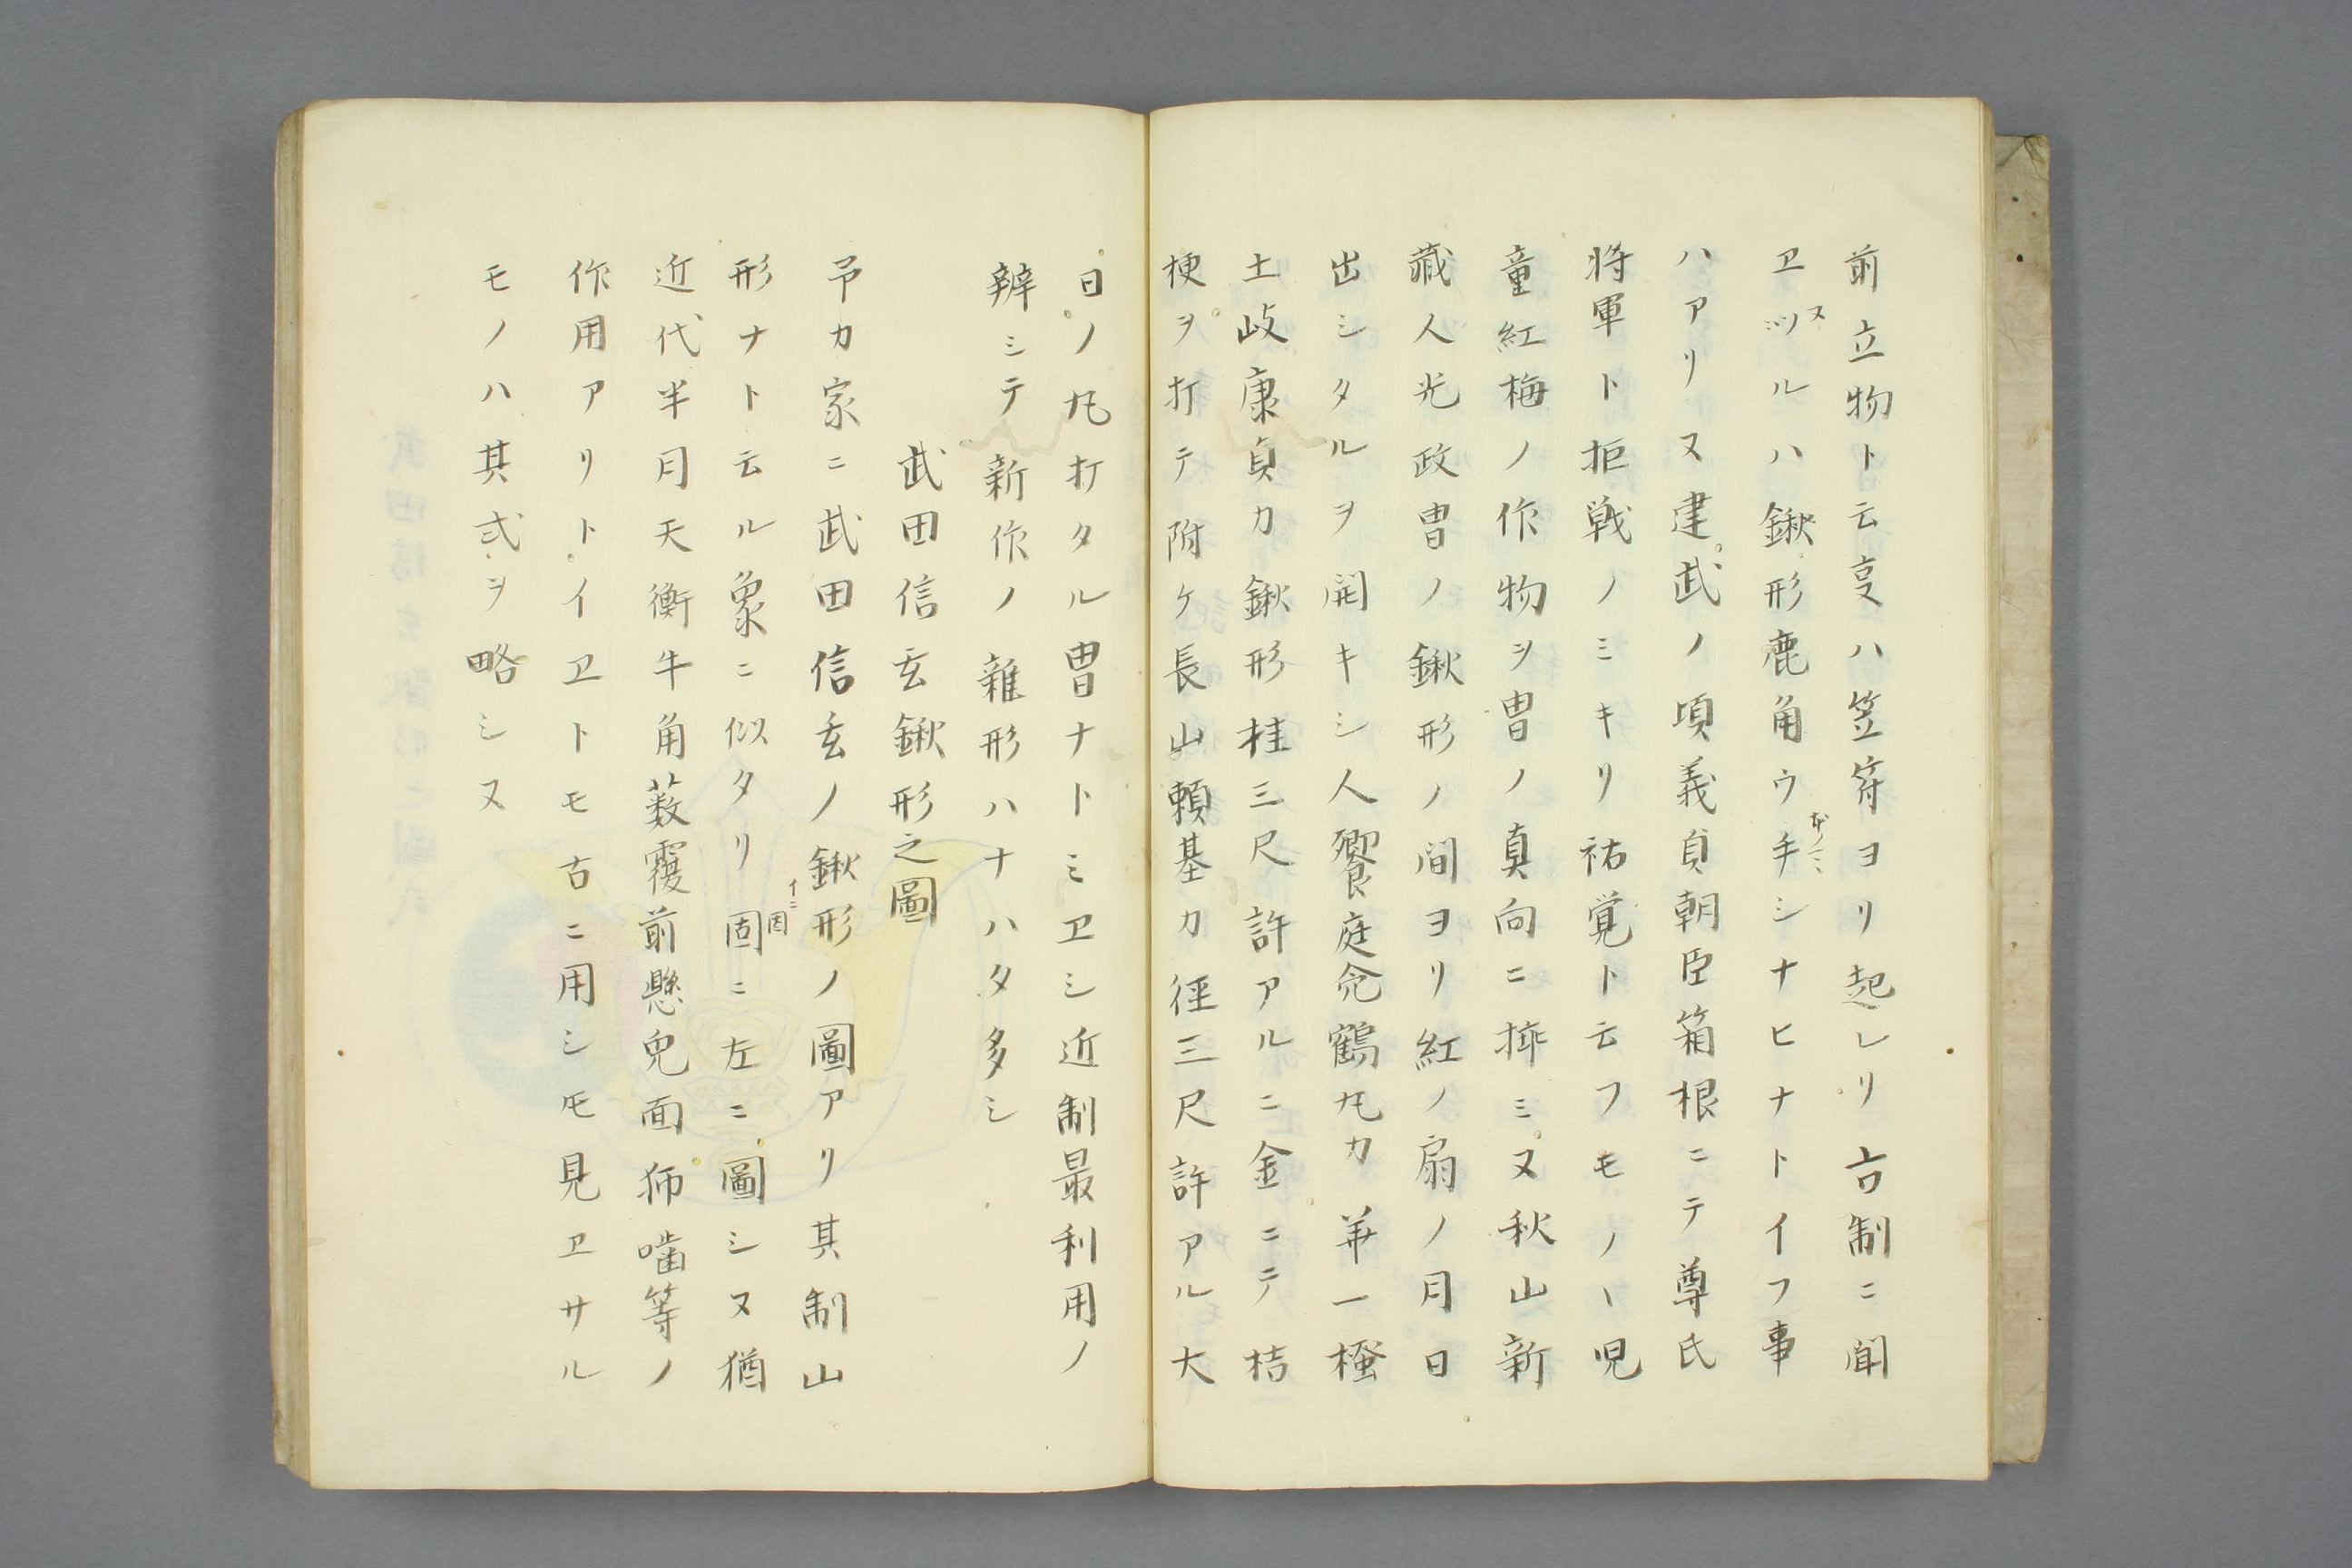 前立物ト云叓ハ笠符ヨリ起レリ古制ニ聞
ヱツルハ鍬形鹿角ウ手シナヒナトイフ事
ハアリ又建武ノ頃義貞朝臣箱根ニテ尊氏
将軍ト拒戦ノミキリ祐覚ト云フモノヽ児
童紅梅ノ作物ヲ冑ノ真向ニ挿ミ又秋山新
蔵人光政冑ノ鍬形ノ間ヨリ紅ノ扇ノ月日
出シタルヲ開キシ人饗庭命鶴丸カ華一揆
土岐康貞カ鍬形桂三尺許アルニ金ニテ桔
梗ヲ打テ附ケ長山頼基カ径三尺許アル大
日ノ丸打タル冑ナトミヱシ近制最利用ノ
辨シテ新作ノ雑形ハナハタ多シ
武田信玄鍬形之圖
予カ家ニ武田信玄ノ鍬形ノ圖アリ其制山
形ナト云ル象ニ似タリ固ニ左ニ圖シヌ猶
近代半月天衝牛角薮覆前懸鬼面獅噛等ノ
作用アリトイヱトモ古ニ用シモ見ヱサル
モノハ其式ヲ略シヌ